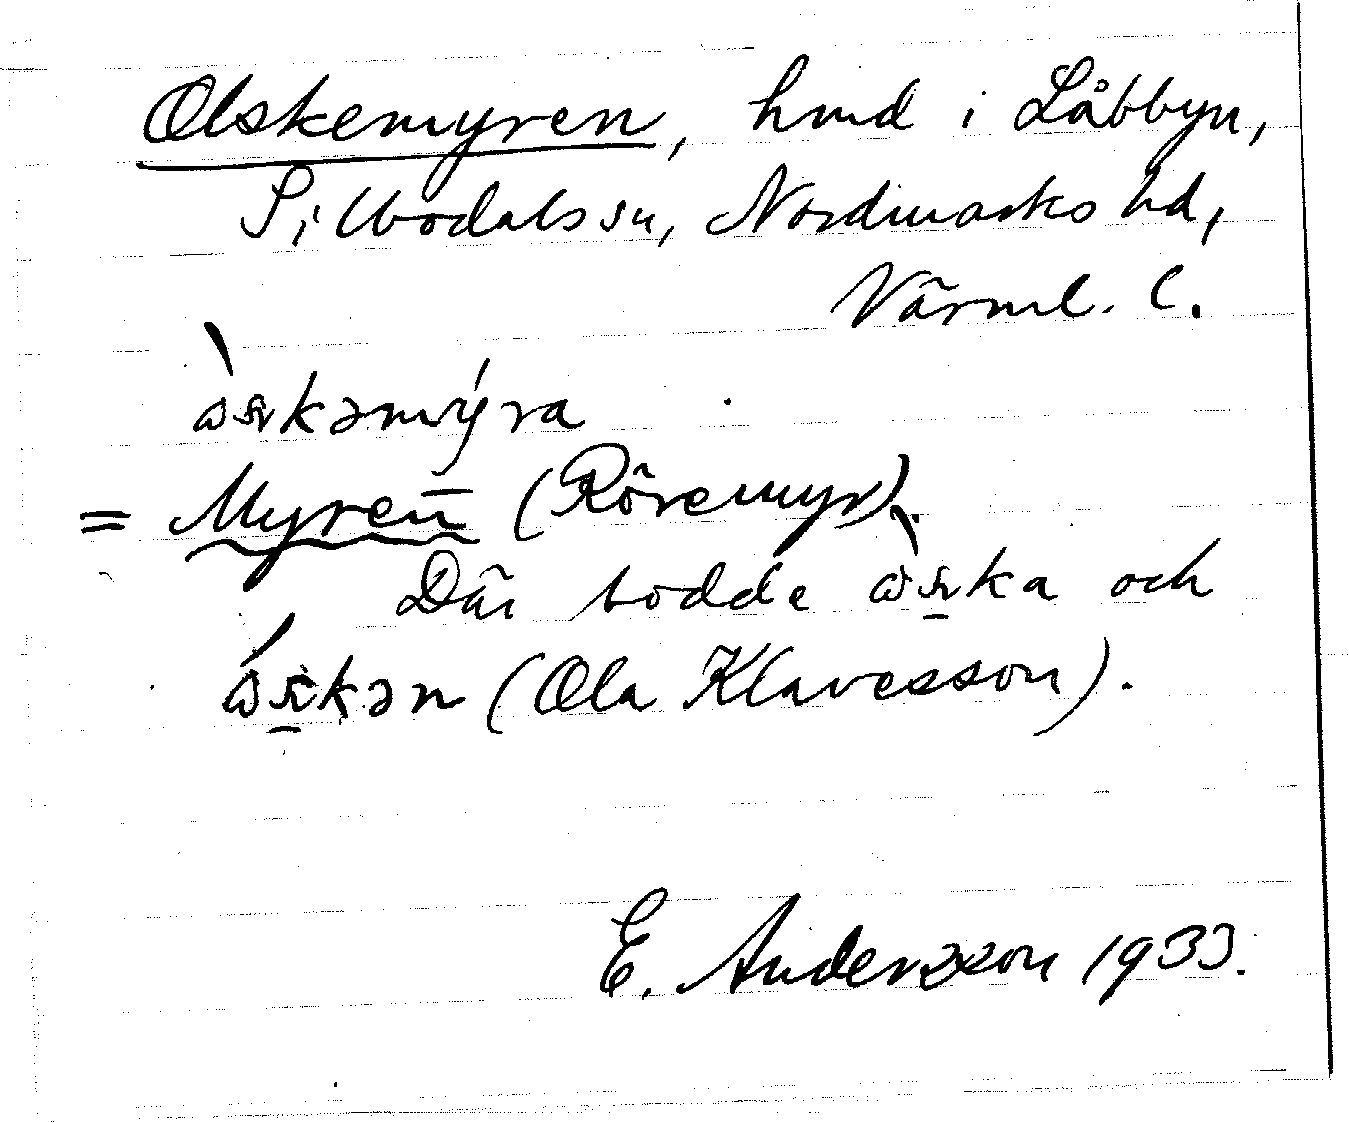 Olskemyren, hmd i Låbbyn,
Silbodals sn, Nordmarks hd,
Värml. l.
= Myren (Röremyr).
Där bodde och
(Ola Klavesson).
E. Andersson 1933.